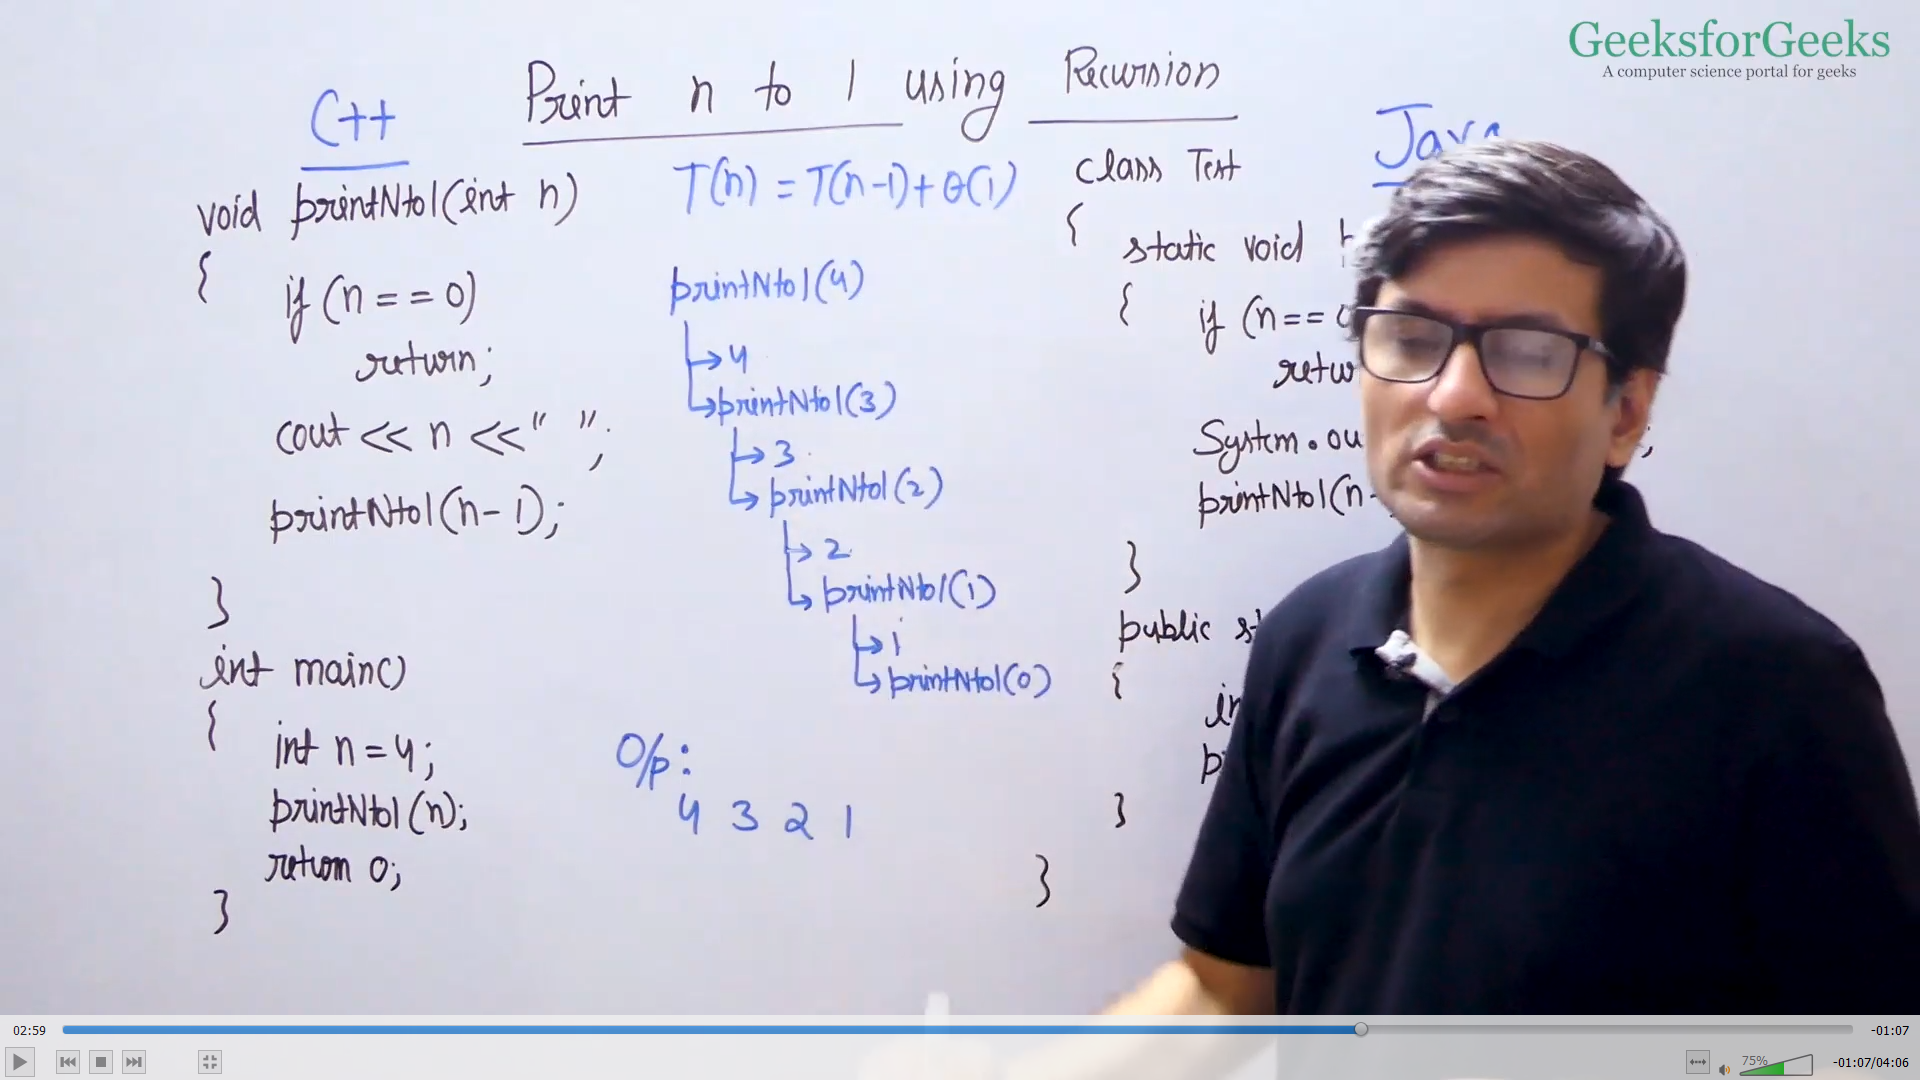 GeeksforGeeks
A computer science portal for geeks
Print n to 1 using Recursion
C++
void printNto1(int n)
{
if (n == 0)
return;
cout << n << " ";
printNto1(n-1);
}
int main()
{
int n = 4;
printNto1(n);
return 0;
}
T(n) = T(n-1) + θ(1)
printNto1(4)
4
printNto1(3)
3
printNto1(2)
2
printNto1(1)
1
printNto1(0)
O/p:
4 3 2 1
Java
class Test
{
static void
{
if (n==
System.ou
;
printNto1(n-
}
public
{
}
}
02:59
-01:07
75%
-01:07/04:06